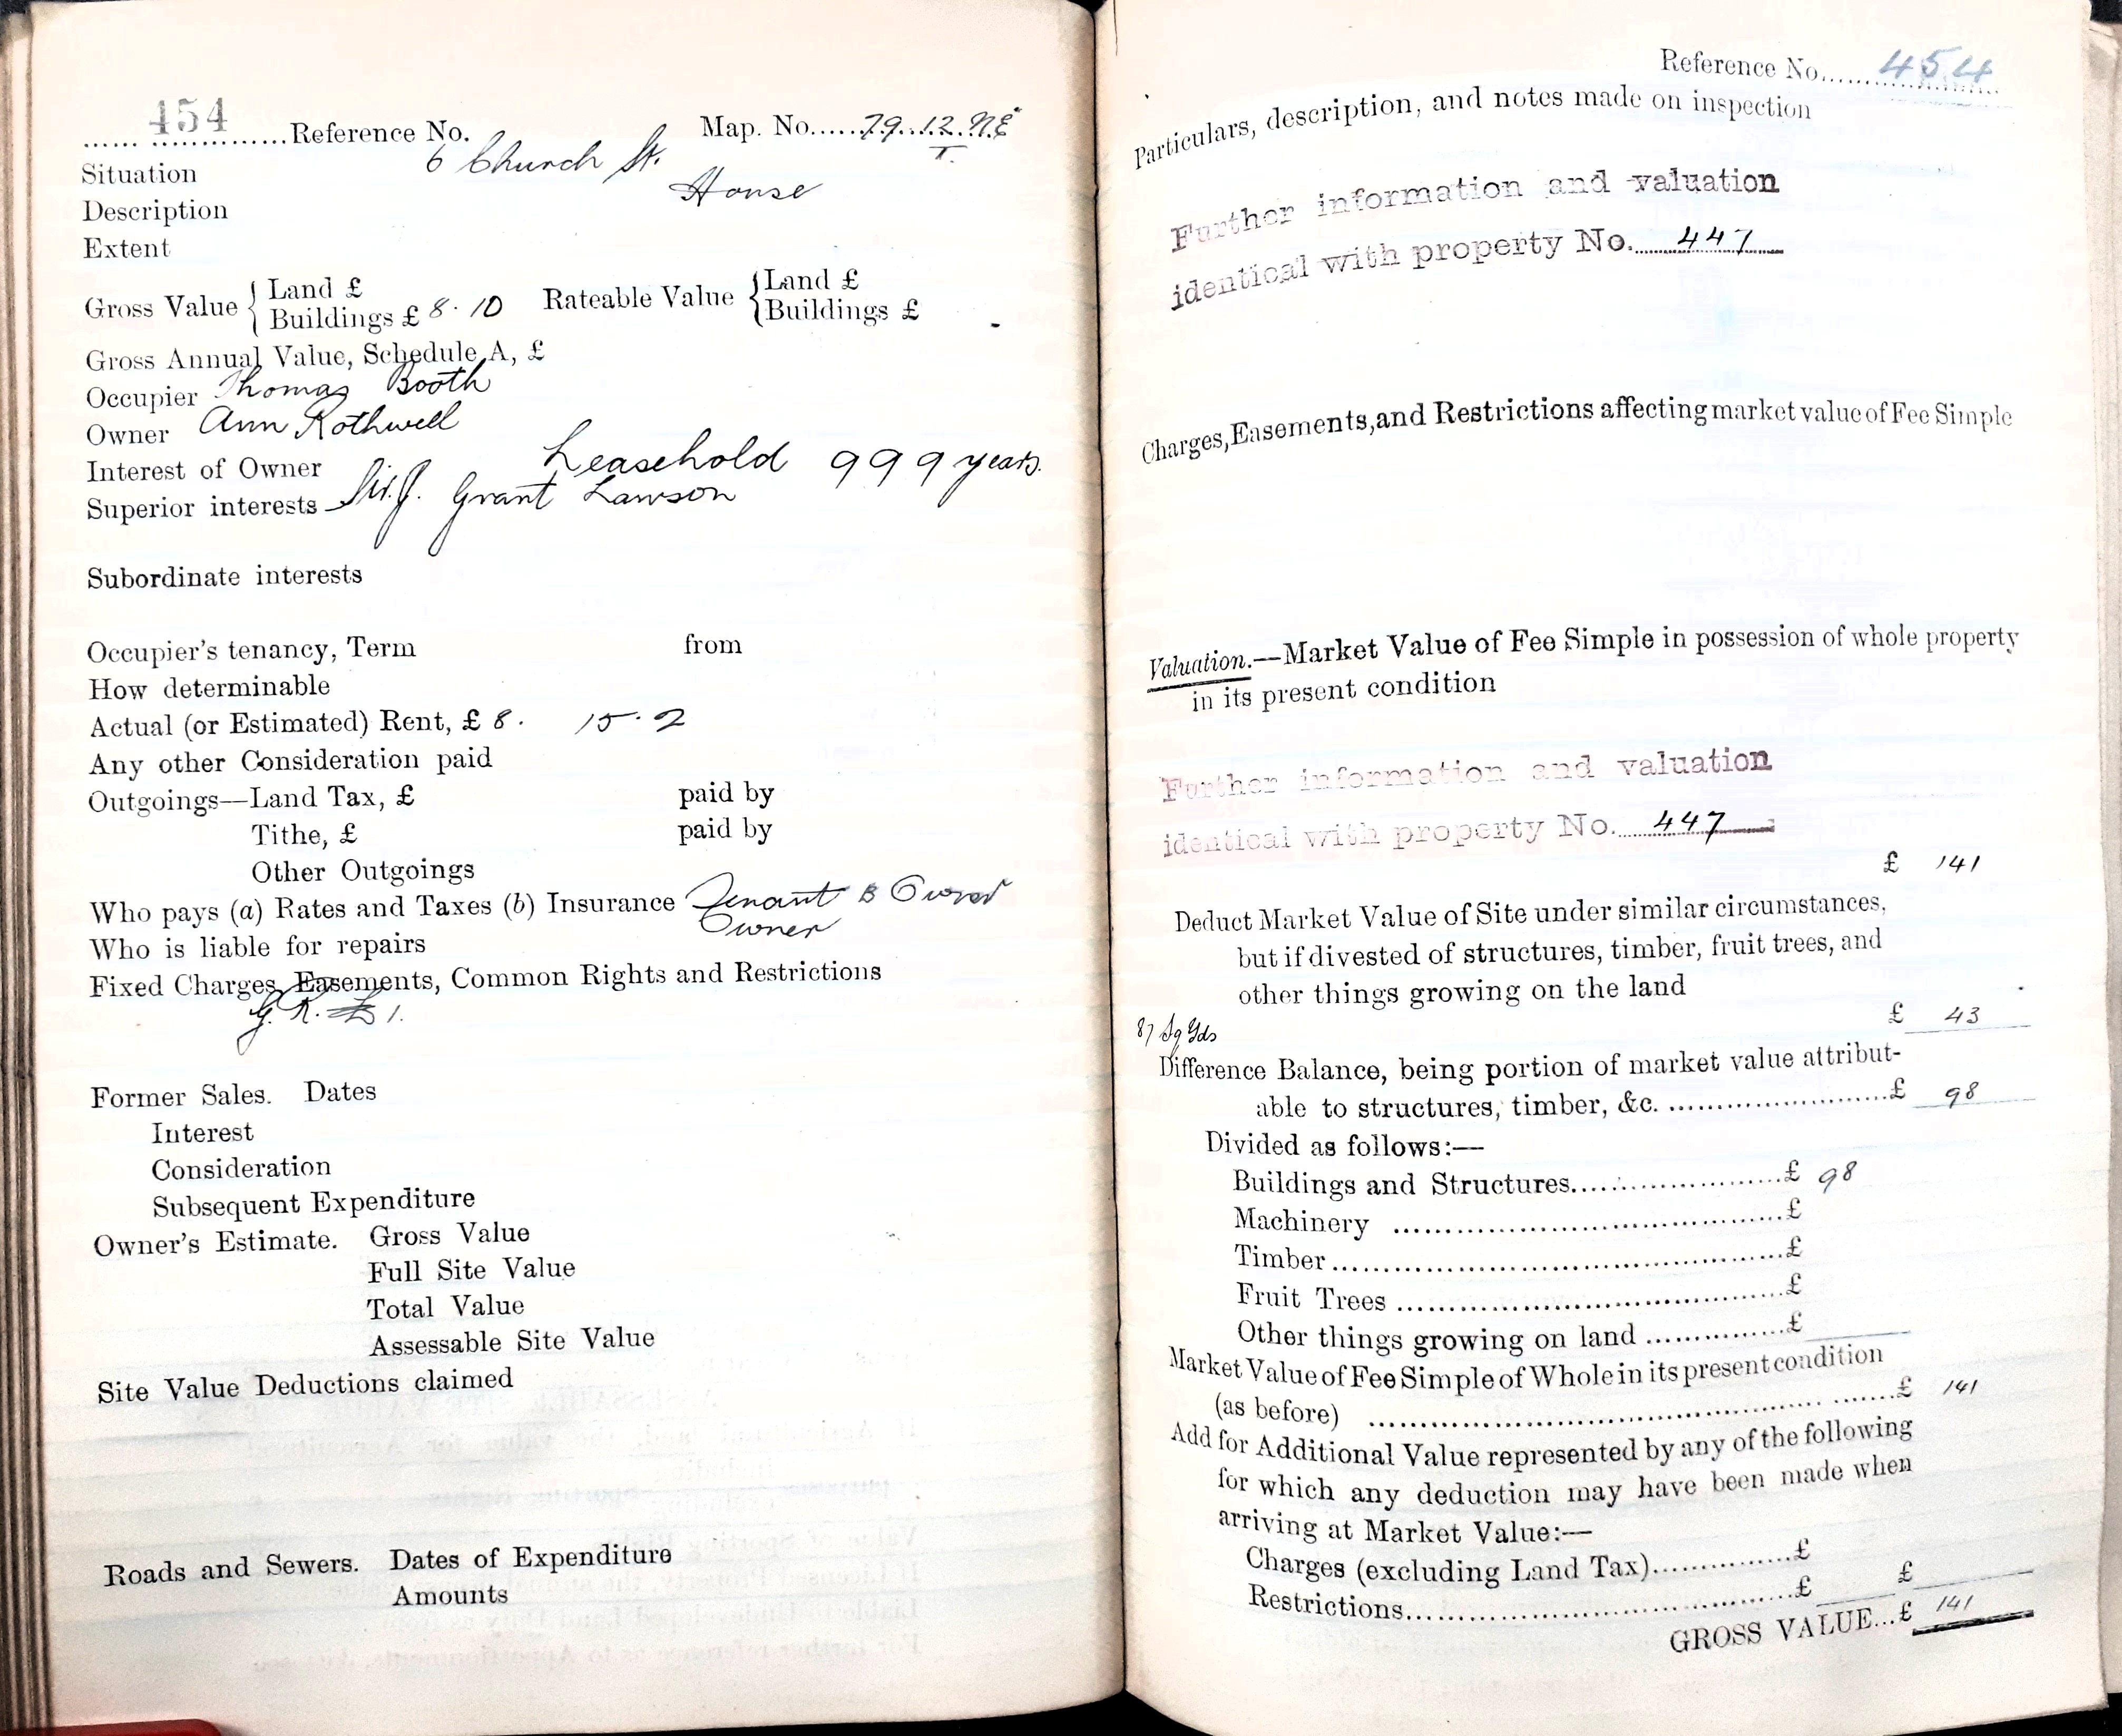 454 Reference No. Map. No. 79.12.N.E
I.
Situation 6 Church St.
Description House
Extent
Gross Value { Land £
Buildings £ 8.10
Rateable Value { Land £
Buildings £
Gross Annual Value, Schedule A, £
Occupier Thomas Booth
Owner Ann Rothwell
Interest of Owner Leasehold 999 years.
Superior interests Sir J. Grant Lawson
Subordinate interests
Occupier's tenancy, Term from
How determinable
Actual (or Estimated) Rent, £ 8. 15.2
Any other Consideration paid
Outgoings—Land Tax, £ paid by
Tithe, £ paid by
Other Outgoings
Who pays (a) Rates and Taxes (b) Insurance Tenant B Owner
Who is liable for repairs Owner
Fixed Charges, Easements, Common Rights and Restrictions
G.R. £1.
Former Sales. Dates
Interest
Consideration
Subsequent Expenditure
Owner's Estimate. Gross Value
Full Site Value
Total Value
Assessable Site Value
Site Value Deductions claimed
Roads and Sewers. Dates of Expenditure
Amounts
Reference No. 454
Particulars, description, and notes made on inspection
Further information and valuation
identical with property No. 447
Charges, Easements, and Restrictions affecting market value of Fee Simple
Valuation.—Market Value of Fee Simple in possession of whole property
in its present condition
Further information and valuation
identical with property No. 447
£ 141
Deduct Market Value of Site under similar circumstances,
but if divested of structures, timber, fruit trees, and
other things growing on the land
£ 43
87 Sq Yds
Difference Balance, being portion of market value attribut-
able to structures, timber, &c. £ 98
Divided as follows:—
Buildings and Structures £ 98
Machinery £
Timber £
Fruit Trees £
Other things growing on land £
Market Value of Fee Simple of Whole in its present condition
(as before) £ 141
Add for Additional Value represented by any of the following
for which any deduction may have been made when
arriving at Market Value:—
Charges (excluding Land Tax) £
Restrictions £ £
GROSS VALUE...£ 141